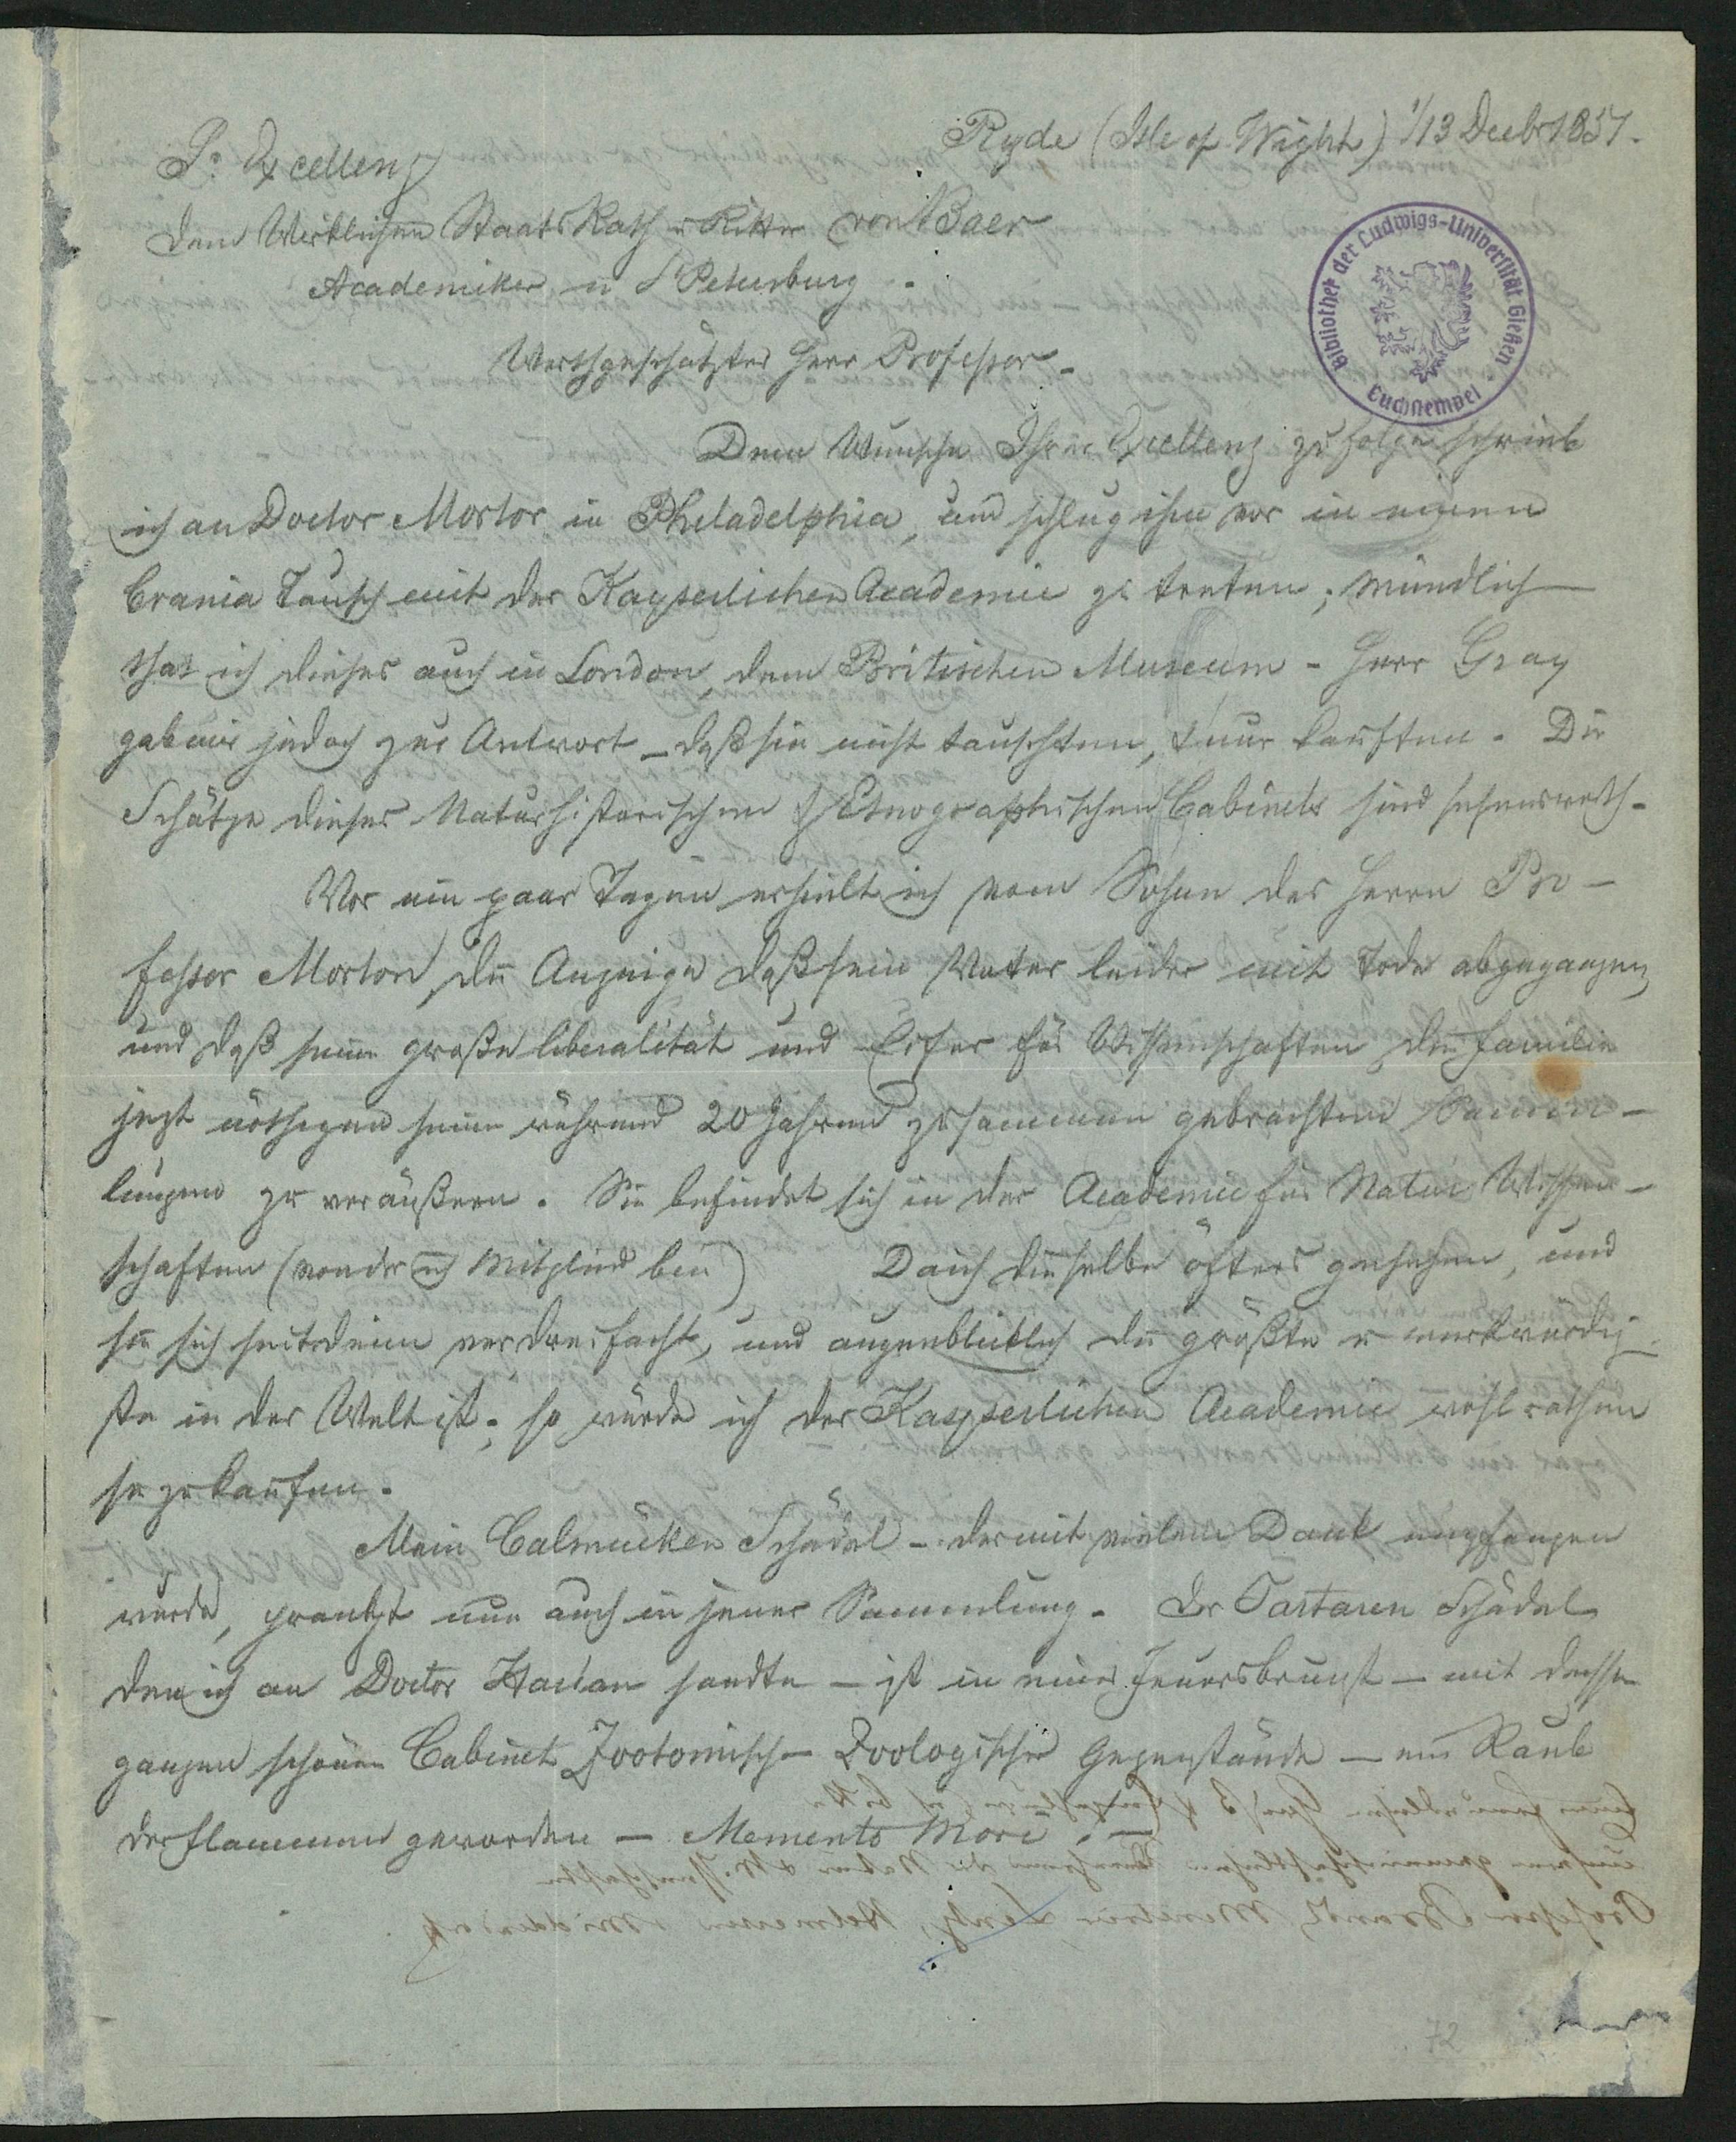 Ryde (Isle of Wight) 1/13 Decbr 1851.
Sr Excellenz
dem Wirklichen Staats Rath u Ritter von Baer
Academiker in St Petersburg.
Werthgeschätzter Herr Professor.
Bibliothek der Ludwigs-Universität Gießen
Buchstempel
Dem Wunsche Ihrer Excellenz zufolge schrieb
ich an Doctor Mortor in Philadelphia, und schlug ihm vor in einen
Crania Tausch mit der Kayserlichen Academie zu treten; mündlich
that ich dieses auch in London, dem Britischen Museum - Herr Gray
gab mir jedoch zur Antwort - daß sie nicht tauschten, & nur kauften. Die
Schätze dieses Naturhistorischen & Etnographischen Cabinets sind sehenswerth.
Vor ein paar Tagen erhielt ich vom Sohne des Herrn Pro-
fessor Morton, die Anzeige daß sein Vater leider mit Tode abgegangen,
und daß seine große liberalität und Eifer für Wissenschaften die familie
jezt nöthigen seine während 20 Jahren zusammen gebrachten Samm-
lungen zu veräußern. Sie befindet sich in der Academie für Natur Wissen-
schaften (von der ich Mitglied bin) Da ich dieselbe öfters gesehen, und
sie sich seitdem verdreifacht, und augenblicklich die größte u merkwürdig-
ste in der Welt ist; so würde ich der Kayserlichen Academie wohl rathen
sie zu kaufen.
Mein Calmücken Schädel - der mit vielem Dank empfangen
wurde, prankt nun auch in jener Sammlung. Der Tartaren Schädel
den ich an Doctor Harlan sandte - ist in einer Feuersbrunst - mit dessen
ganzen schönen Cabinet Zootomisch - Zoologischer Gegenstände - ein Raub
der flammen geworden - Memento Mori. -
72